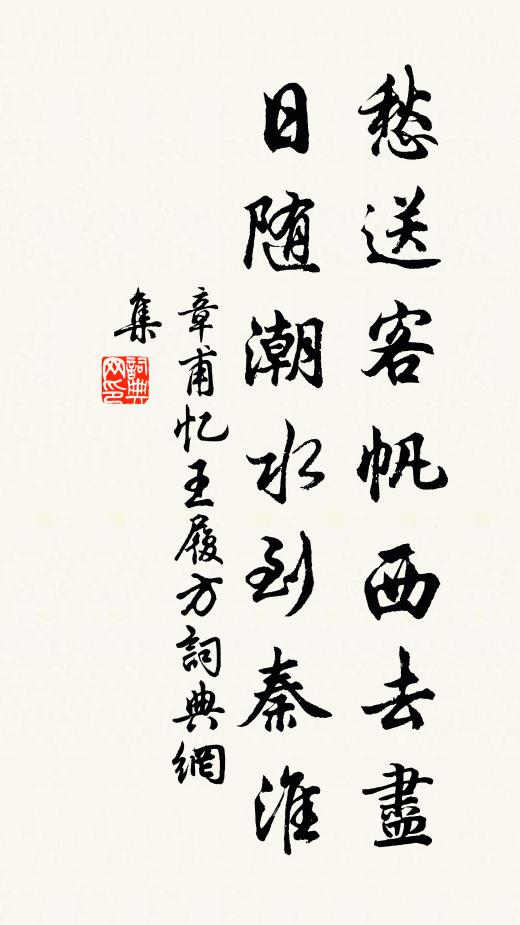 愁送客帆西去盡
日随潮水到秦淮
章甫忆王履方詞典網
集
詞典网印